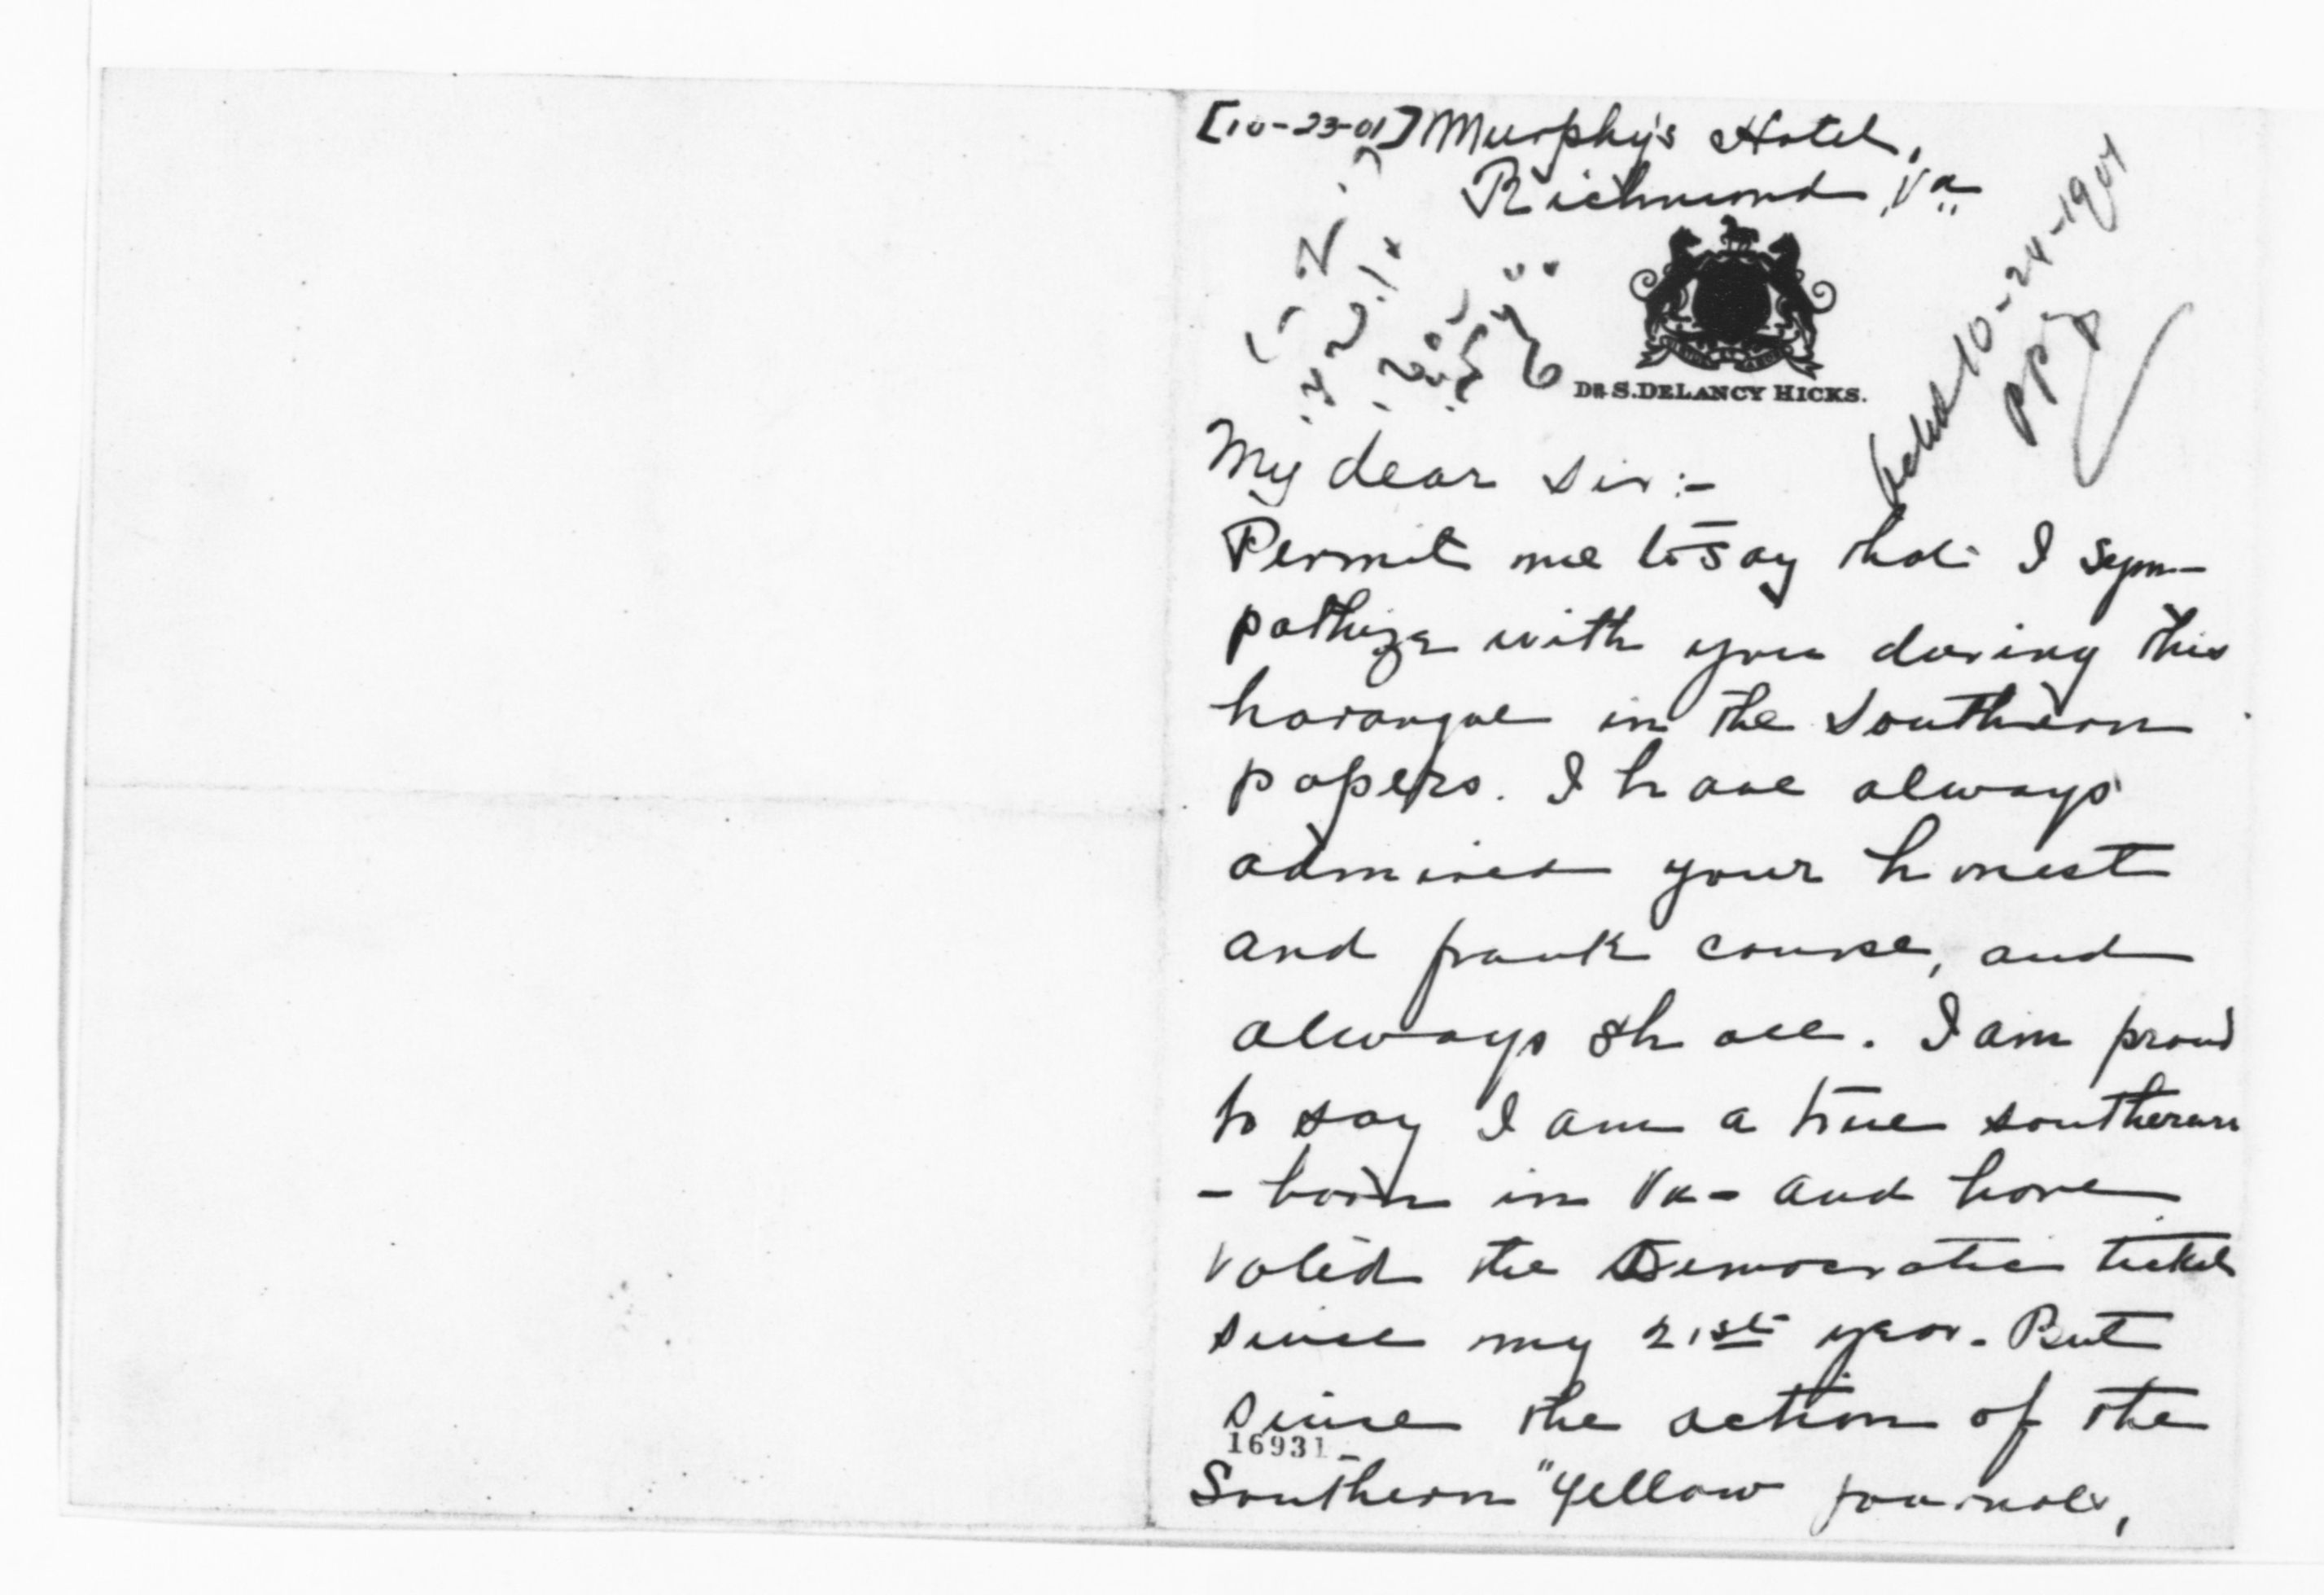 [10-23-01] Murphy's Hotel,
Richmond, Va
DR S. DELANCY HICKS.
ackd 10-24-1901
PPF
My dear sir:-
Permit me to say that I sym-
pathize with you during this
harangue in the Southern
papers. I have always
admired your honest
and frank course, and
always shall. I am proud
to say I am a true southern
- born in Va - and have
voted the Democratic ticket
since my 21st year. But
since the action of the
16931
Southern "Yellow journals,